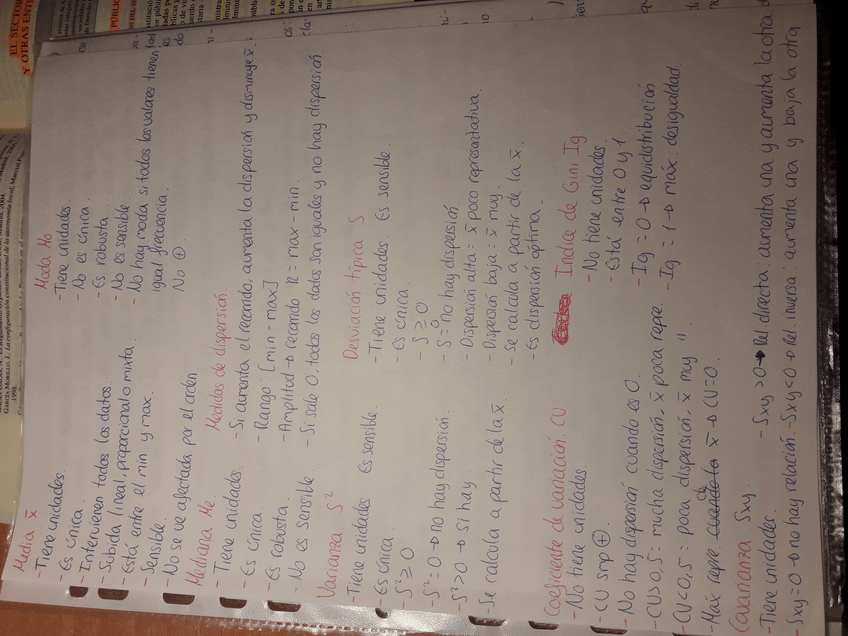 Media x̄
- Tiene unidades
- Es única.
- Intervienen todos los datos
- Subida lineal, proporcional o mixta
- Está entre el min y max.
- Sensible.
- No se ve afectada por el orden
Mediana Me
- Tiene unidades
- Es única.
- Es robusta
- No es sensible.
Moda Mo
- Tiene unidades
- No es única.
- Es robusta
- No es sensible
- No hay moda si todos los valores tienen
igual frecuencia.
No ⊕.
Medidas de dispersión
- Si aumenta el recorrido, aumenta la dispersión y disminuye x̄.
- Rango [min - max]
- Amplitud → recorrido R = max - min.
- Si sale 0, todos los datos son iguales y no hay dispersión.
Varianza S²
- Tiene unidades Es sensible
- Es única.
- S² ≥ 0
- S² = 0 → no hay dispersión.
- S² > 0 → si hay.
- Se calcula a partir de la x̄.
Desviación típica S
- Tiene unidades Es sensible.
- es única.
- S ≥ 0
- S = 0 no hay dispersión
- Dispersión alta = x̄ poco representativa.
- Dispersión baja = x̄ muy
- Se calcula a partir de la x̄.
- Es dispersión optima.
Coeficiente de variación. CV
- No tiene unidades
- CV smp ⊕
- No hay dispersión cuando es 0.
- CV > 0,5 = mucha dispersión, x̄ poco repre.
- CV < 0,5 = poca dispersión, x̄ muy "
- Max repre. de x̄ → CV = 0.
Indice de Gini Ig
- No tiene unidades
- Está entre 0 y 1
- Ig = 0 → equidistribución
- Ig = 1 → máx. desigualdad
Covarianza Sxy.
- Tiene unidades. - Sxy > 0 → Rel directa: aumenta una y aumenta la otra
- Sxy = 0 → no hay relación. - Sxy < 0 → Rel. inversa: aumenta una y baja la otra
EL SECTOR
Y OTRAS ENT